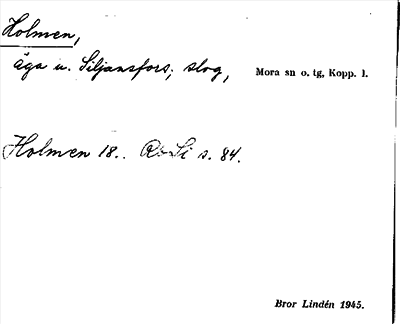 Holmen,
äga u. Siljansfors; slog, Mora sn o. tg, Kopp. l.
Holmen 18.. Rö Li s. 84.
Bror Lindén 1945.